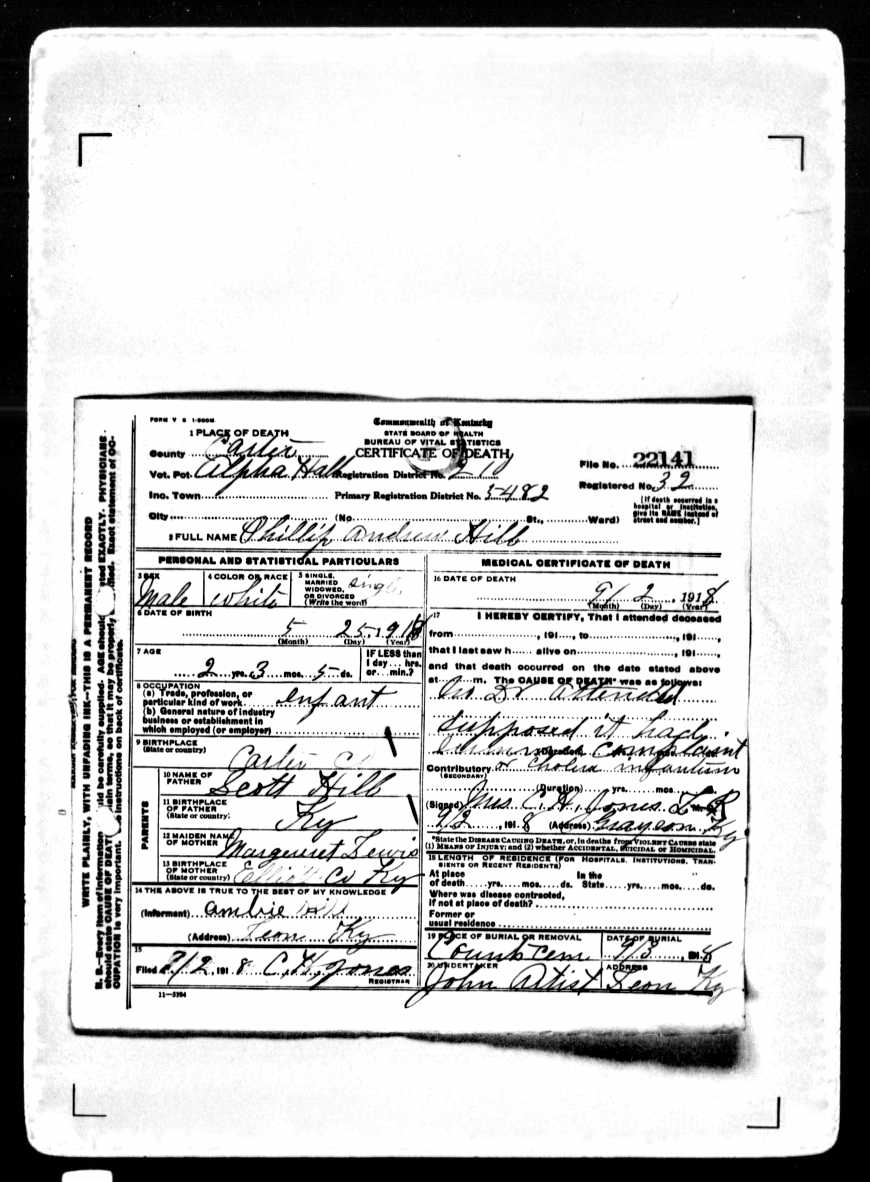 FORM V S 1-500M
Commonwealth of Kentucky
STATE BOARD OF HEALTH
BUREAU OF VITAL STATISTICS
CERTIFICATE OF DEATH
1 PLACE OF DEATH
County Carter
Vot. Pct. Alpha Hall Registration District No. 210
File No. 22141
Inc. Town Primary Registration District No. 5482
Registered No. 32
[If death occurred in a hospital or institution, give its NAME instead of street and number.]
City (No. St., Ward)
2 FULL NAME Phillip Andrew Hill
PERSONAL AND STATISTICAL PARTICULARS
3 SEX Male
4 COLOR OR RACE White
5 SINGLE, MARRIED WIDOWED, OR DIVORCED (Write the word) Single
6 DATE OF BIRTH
5 25 191
(Month) (Day) (Year)
7 AGE
2 yrs. 3 mos. 5 ds.
IF LESS than 1 day ... hrs. or ... min.?
8 OCCUPATION
(a) Trade, profession, or particular kind of work infant
(b) General nature of industry business or establishment in which employed (or employer)
9 BIRTHPLACE
(State or country) Carter Co
PARENTS
10 NAME OF FATHER Scott Hill
11 BIRTHPLACE OF FATHER (State or country) Ky
12 MAIDEN NAME OF MOTHER Margaret Lewis
13 BIRTHPLACE OF MOTHER (State or country) Elliott Co Ky
14 THE ABOVE IS TRUE TO THE BEST OF MY KNOWLEDGE
(Informant) Hill
(Address) Leon Ky
15
Filed 9/2, 191 8 C. H. Jones
REGISTRAR
11-5394
MEDICAL CERTIFICATE OF DEATH
16 DATE OF DEATH
9/ 2, 1918
(Month) (Day) (Year)
17 I HEREBY CERTIFY, That I attended deceased
from , 191 , to , 191 ,
that I last saw h alive on , 191 ,
and that death occurred on the date stated above
at m. The CAUSE OF DEATH* was as follows:
No Dr attended
supposed it had
complaint
Contributory or cholera infantum
(SECONDARY)
(Duration) yrs. mos. ds.
(Signed) Mrs. C. H. Jones L R
9/2, 191 8 (Address) Grayson Ky
*State the DISEASE CAUSING DEATH, or, in deaths from VIOLENT CAUSES state
(1) MEANS OF INJURY; and (2) whether ACCIDENTAL, SUICIDAL OR HOMICIDAL.
18 LENGTH OF RESIDENCE (FOR HOSPITALS, INSTITUTIONS, TRANSIENTS OR RECENT RESIDENTS)
At place of death yrs. mos. ds. In the State yrs. mos. ds.
Where was disease contracted,
if not at place of death?
Former or
usual residence
19 PLACE OF BURIAL OR REMOVAL
Cem
DATE OF BURIAL
9/3, 191 8
20 UNDERTAKER
John Artist
ADDRESS
Leon Ky
WRITE PLAINLY, WITH UNFADING INK—THIS IS A PERMANENT RECORD